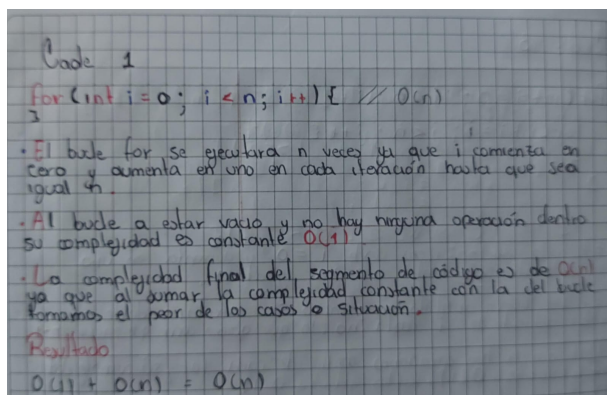 Code 1
for (int i = 0; i < n; i++) { // O(n)
}
• El bucle for se ejecutara n veces ya que i comienza en
cero y aumenta en uno en cada iteración hasta que sea
igual n.
• Al bucle a estar vacio y no hay ninguna operación dentro
su complejidad es constante O(1)
• La complejidad final del segmento de código es de O(n)
ya que al sumar la complejidad constante con la del bucle
tomamos el peor de los casos o situación.
Resultado
O(1) + O(n) = O(n)